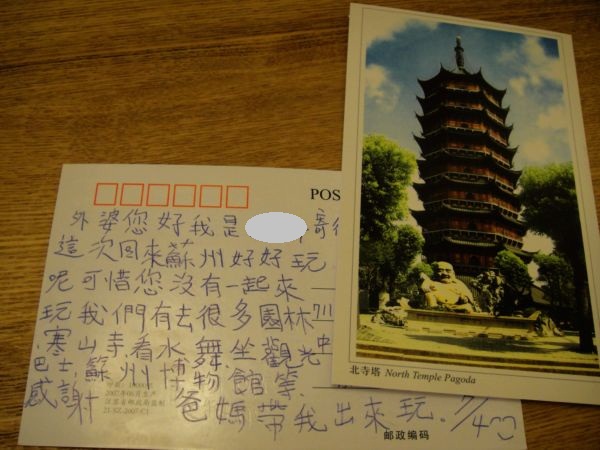 POS
外婆您好我是 寄
這次回來蘇州好好玩
呢可惜您沒有一起來
玩我們有去很多園林
寒山寺看水舞坐觀光
巴士.蘇州博物館等.
感謝 爸媽帶我出來玩. 7/4
2007年06月生产
江苏省邮政局监制
邮政编码
北寺塔 North Temple Pagoda